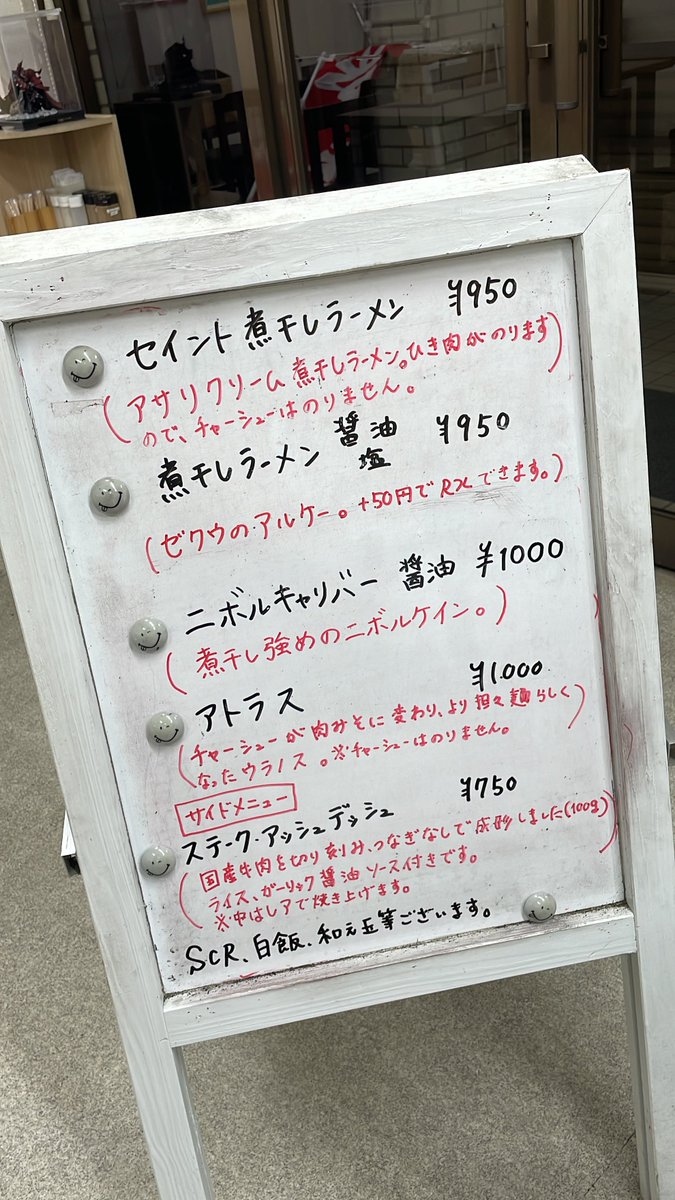 セイント煮干しラーメン ¥950
(アサリクリーム煮干しラーメン。ひき肉がのります
ので、チャーシューはのりません。)
煮干しラーメン 醤油 ¥950
塩
(ゼクウのアルケー。+50円でRXできます。)
ニボルキャリバー 醤油 ¥1000
(煮干し強めのニボルケイン。)
アトラス ¥1.000
(チャーシューが肉みそに変わり、より担々麺らしく
なったウラノス。※チャーシューはのりません。)
サイドメニュー
ステーク・アッシュデッシュ ¥750
(国産牛肉を切り刻み、つなぎなしで成形しました(100g)
ライス、ガーリック醤油ソース付きです。
※中はレアで焼き上げます。)
SCR、白飯、和え玉等ございます。